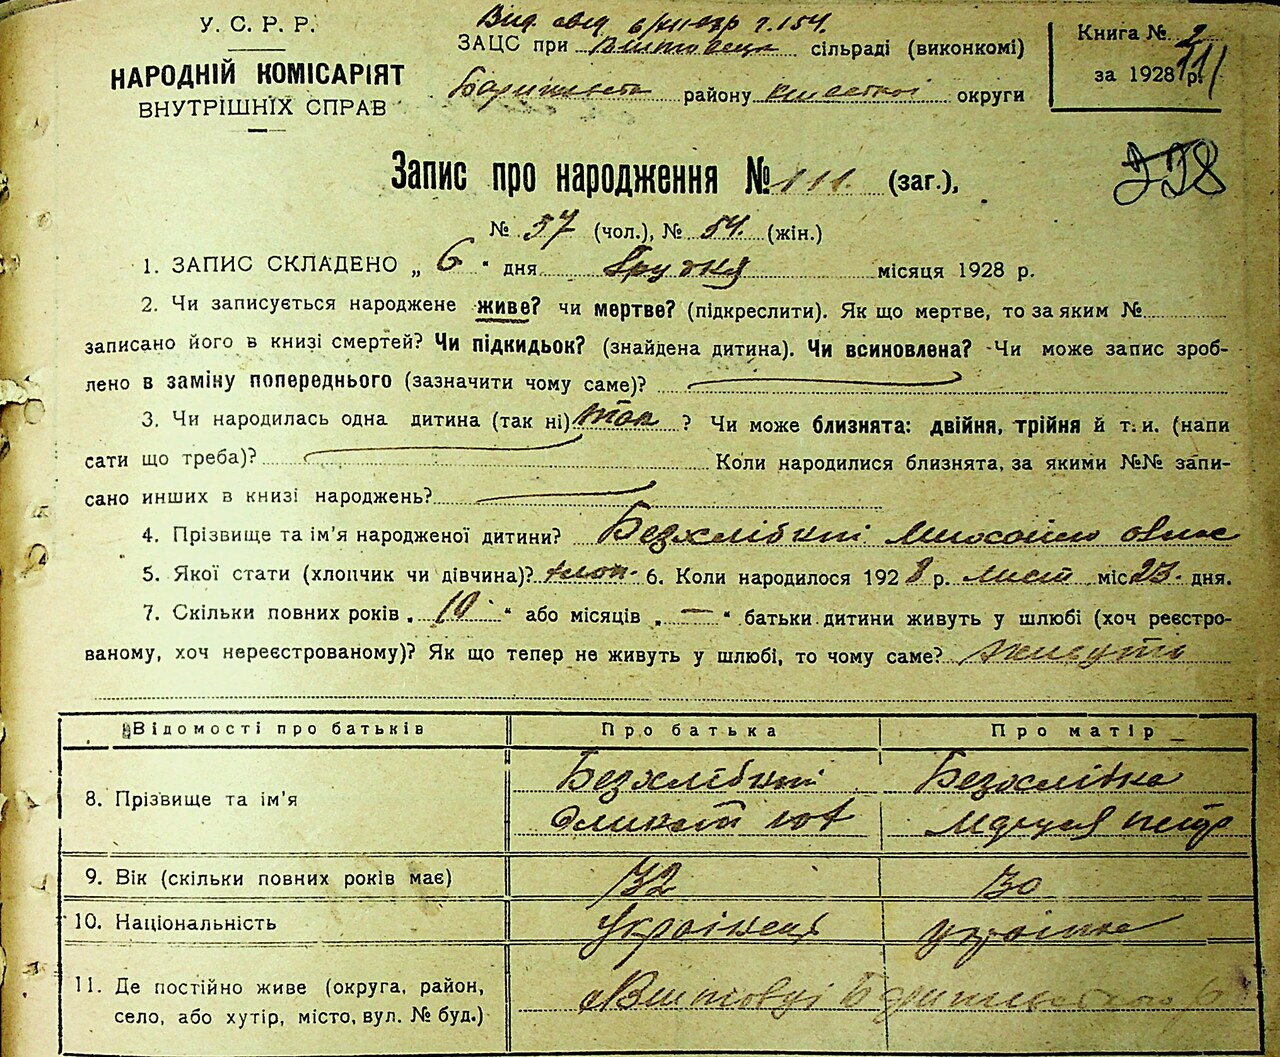 У. С. Р. Р.
НАРОДНІЙ КОМІСАРІЯТ
ВНУТРІШНІХ СПРАВ
Вид. свід. 6/XII-28р
ЗАЦС при сільраді (виконкомі)
району округи
Книга № 2
за 1928 р.
111
Запис про народження № 111. (заг.),
228
№ 57 (чол.), № 54. (жін.)
1. ЗАПИС СКЛАДЕНО „ 6 " дня Грудня місяця 1928 р.
2. Чи записується народжене живе? чи мертве? (підкреслити). Як що мертве, то за яким №
записано його в книзі смертей? Чи підкидьок? (знайдена дитина). Чи всиновлена? Чи може запис зроб-
лено в заміну попереднього (зазначити чому саме)?
3. Чи народилась одна дитина (так ні) так ? Чи може близнята: двійня, трійня й т. и. (напи
сати що треба)? Коли народилися близнята, за якими №№ запи-
сано инших в книзі народжень?
4. Прізвище та ім'я народженої дитини? Безхлібний
5. Якої стати (хлопчик чи дівчина)? хлоп. 6. Коли народилося 1928 р. лист міс 23. дня.
7. Скільки повних років „ 10 " або місяців „ — " батьки дитини живуть у шлюбі (хоч реєстро-
ваному, хоч нереєстрованому)? Як що тепер не живуть у шлюбі, то чому саме? живуть
Відомості про батьків Про батька Про матір
8. Прізвище та ім'я Безхлібний Безхлібна
9. Вік (скільки повних років має) 32 30
10. Національність Українець українка
11. Де постійно живе (округа, район,
село, або хутір, місто, вул. № буд.)